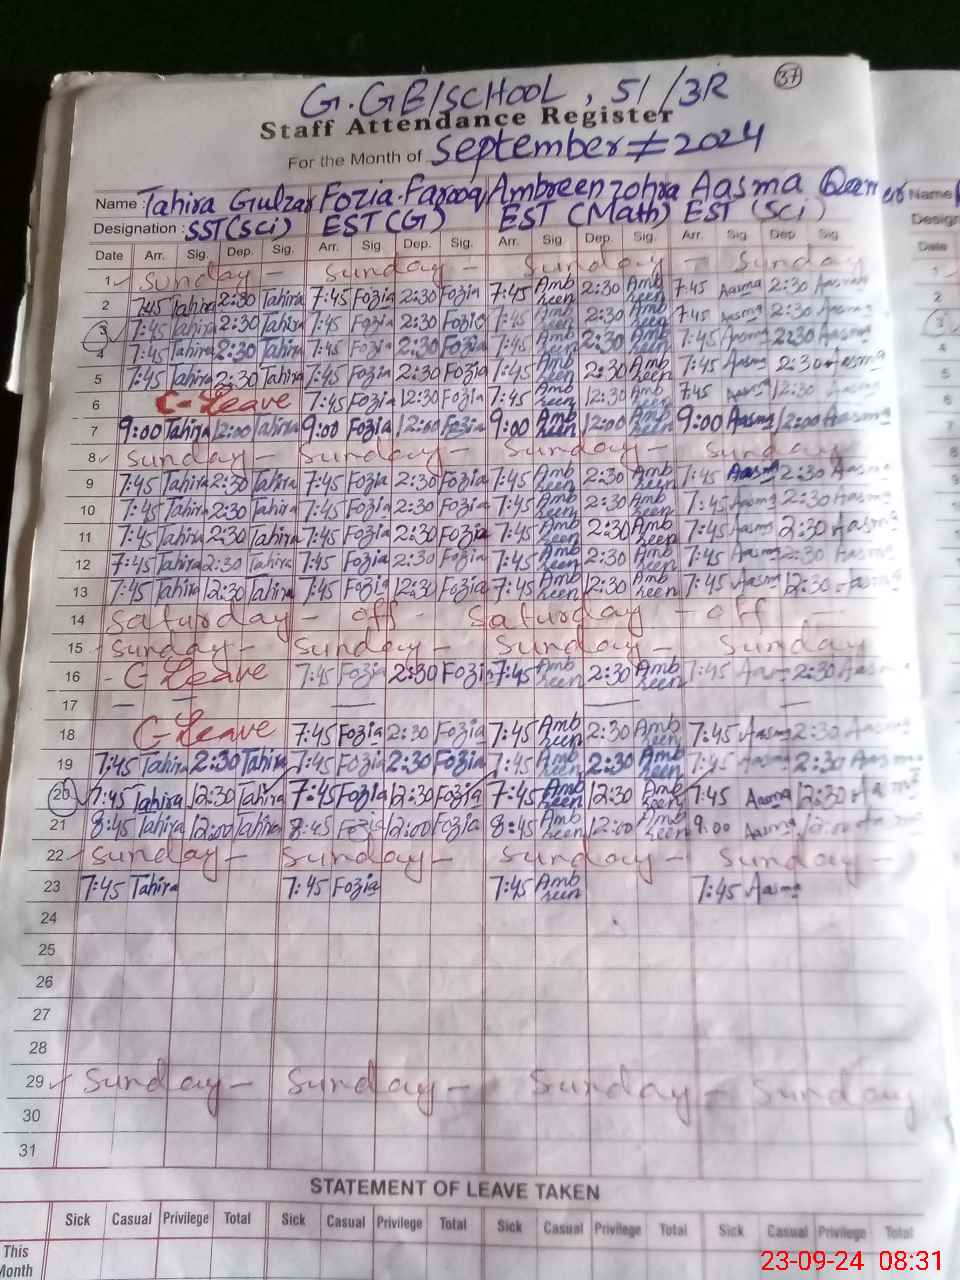 37
G.GE/SCHOOL, 51/3R
Staff Attendance Register
For the Month of September 2024
Name : Tahira Gulzar Fozia Farooq Ambreen zohra Aasma Name
Designation : SST(Sci) EST(G) EST(Math) EST(Sci)
Date Arr. Sig. Dep. Sig. Arr. Sig. Dep. Sig. Arr. Sig Dep. Sig. Arr. Sig Dep Sig Date
1 Sunday - Sunday - Sunday - Sunday
2 7:45 Tahira 2:30 Tahira 7:45 Fozia 2:30 Fozia 7:45 Ambreen 2:30 Ambreen 7:45 Aasma 2:30 Aasma
3 7:45 Tahira 2:30 Tahira 7:45 Fozia 2:30 Fozia 7:45 Ambreen 2:30 Ambreen 7:45 Aasma 2:30 Aasma
4 7:45 Tahira 2:30 Tahira 7:45 Fozia 2:30 Fozia 7:45 Ambreen 2:30 Ambreen 7:45 Aasma 2:30 Aasma
5 7:45 Tahira 2:30 Tahira 7:45 Fozia 2:30 Fozia 7:45 Ambreen 2:30 Ambreen 7:45 Aasma 2:30 Aasma
6 C-Leave 7:45 Fozia 12:30 Fozia 7:45 Ambreen 12:30 Ambreen 7:45 Aasma 12:30 Aasma
7 9:00 Tahira 12:00 Tahira 9:00 Fozia 12:00 Fozia 9:00 Ambreen 12:00 Ambreen 9:00 Aasma 12:00 Aasma
8 Sunday - Sunday - Sunday - Sunday
9 7:45 Tahira 2:30 Tahira 7:45 Fozia 2:30 Fozia 7:45 Ambreen 2:30 Ambreen 7:45 Aasma 2:30 Aasma
10 7:45 Tahira 2:30 Tahira 7:45 Fozia 2:30 Fozia 7:45 Ambreen 2:30 Ambreen 7:45 Aasma 2:30 Aasma
11 7:45 Tahira 2:30 Tahira 7:45 Fozia 2:30 Fozia 7:45 Ambreen 2:30 Ambreen 7:45 Aasma 2:30 Aasma
12 7:45 Tahira 2:30 Tahira 7:45 Fozia 2:30 Fozia 7:45 Ambreen 2:30 Ambreen 7:45 Aasma 2:30 Aasma
13 7:45 Tahira 12:30 Tahira 7:45 Fozia 12:30 Fozia 7:45 Ambreen 12:30 Ambreen 7:45 Aasma 12:30 Aasma
14 Saturday - off - Saturday - off -
15 Sunday - Sunday - Sunday - Sunday
16 - C-Leave 7:45 Fozia 2:30 Fozia 7:45 Ambreen 2:30 Ambreen 7:45 Aasma 2:30 Aasma
17 — — — — —
18 C-Leave 7:45 Fozia 2:30 Fozia 7:45 Ambreen 2:30 Ambreen 7:45 Aasma 2:30 Aasma
19 7:45 Tahira 2:30 Tahira 7:45 Fozia 2:30 Fozia 7:45 Ambreen 2:30 Ambreen 7:45 Aasma 2:30 Aasma
20 7:45 Tahira 12:30 Tahira 7:45 Fozia 12:30 Fozia 7:45 Ambreen 12:30 Ambreen 7:45 Aasma 12:30 Aasma
21 8:45 Tahira 12:00 Tahira 8:45 Fozia 12:00 Fozia 8:45 Ambreen 12:00 Ambreen 9:00 Aasma 12:00
22 Sunday - Sunday - Sunday - Sunday -
23 7:45 Tahira 7:45 Fozia 7:45 Ambreen 7:45 Aasma
24
25
26
27
28
29 Sunday - Sunday - Sunday - Sunday
30
31
STATEMENT OF LEAVE TAKEN
Sick Casual Privilege Total Sick Casual Privilege Total Sick Casual Privilege Total Sick Casual Privilege Total
This Month
23-09-24 08:31